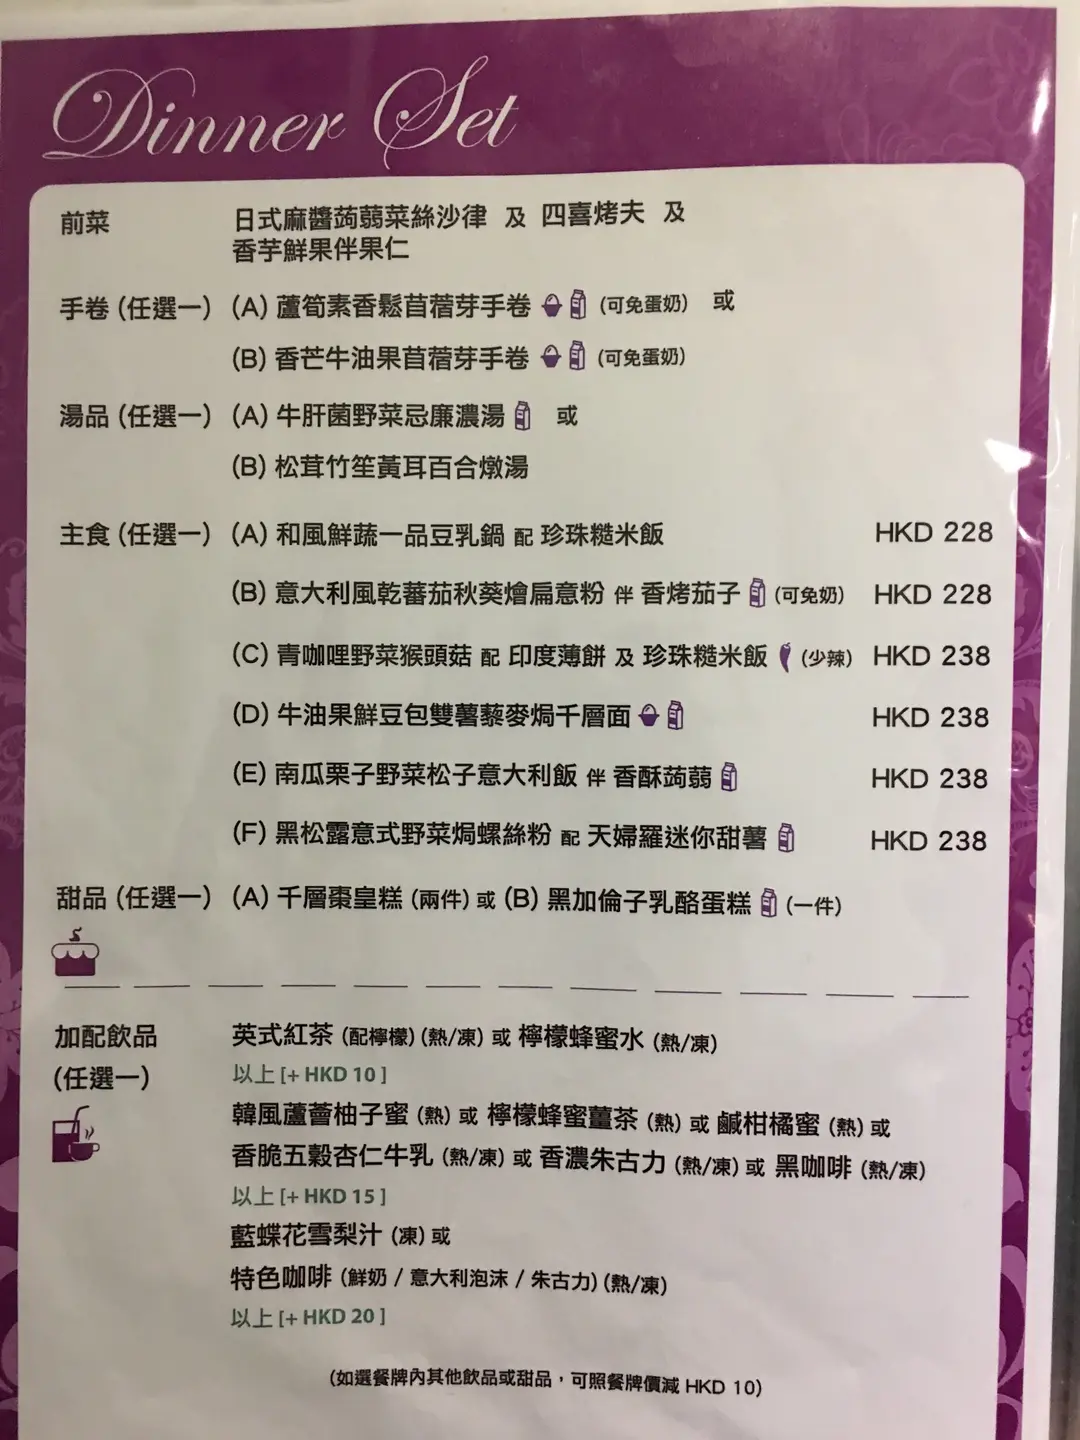 Dinner Set
前菜 日式麻醬蒟蒻菜絲沙律 及 四喜烤夫 及
香芋鮮果伴果仁
手卷 (任選一) (A) 蘆筍素香鬆苜蓿芽手卷 (可免蛋奶) 或
(B) 香芒牛油果苜蓿芽手卷 (可免蛋奶)
湯品 (任選一) (A) 牛肝菌野菜忌廉濃湯 或
(B) 松茸竹笙黃耳百合燉湯
主食 (任選一) (A) 和風鮮蔬一品豆乳鍋 配 珍珠糙米飯 HKD 228
(B) 意大利風乾蕃茄秋葵燴扁意粉 伴 香烤茄子 (可免奶) HKD 228
(C) 青咖哩野菜猴頭菇 配 印度薄餅 及 珍珠糙米飯 (少辣) HKD 238
(D) 牛油果鮮豆包雙薯藜麥焗千層面 HKD 238
(E) 南瓜栗子野菜松子意大利飯 伴 香酥蒟蒻 HKD 238
(F) 黑松露意式野菜焗螺絲粉 配 天婦羅迷你甜薯 HKD 238
甜品 (任選一) (A) 千層棗皇糕 (兩件) 或 (B) 黑加倫子乳酪蛋糕 (一件)
加配飲品 英式紅茶 (配檸檬) (熱/凍) 或 檸檬蜂蜜水 (熱/凍)
(任選一) 以上 [+ HKD 10 ]
韓風蘆薈柚子蜜 (熱) 或 檸檬蜂蜜薑茶 (熱) 或 鹹柑橘蜜 (熱) 或
香脆五穀杏仁牛乳 (熱/凍) 或 香濃朱古力 (熱/凍) 或 黑咖啡 (熱/凍)
以上 [+ HKD 15 ]
藍蝶花雪梨汁 (凍) 或
特色咖啡 (鮮奶 / 意大利泡沫 / 朱古力) (熱/凍)
以上 [+ HKD 20 ]
(如選餐牌內其他飲品或甜品，可照餐牌價減 HKD 10)